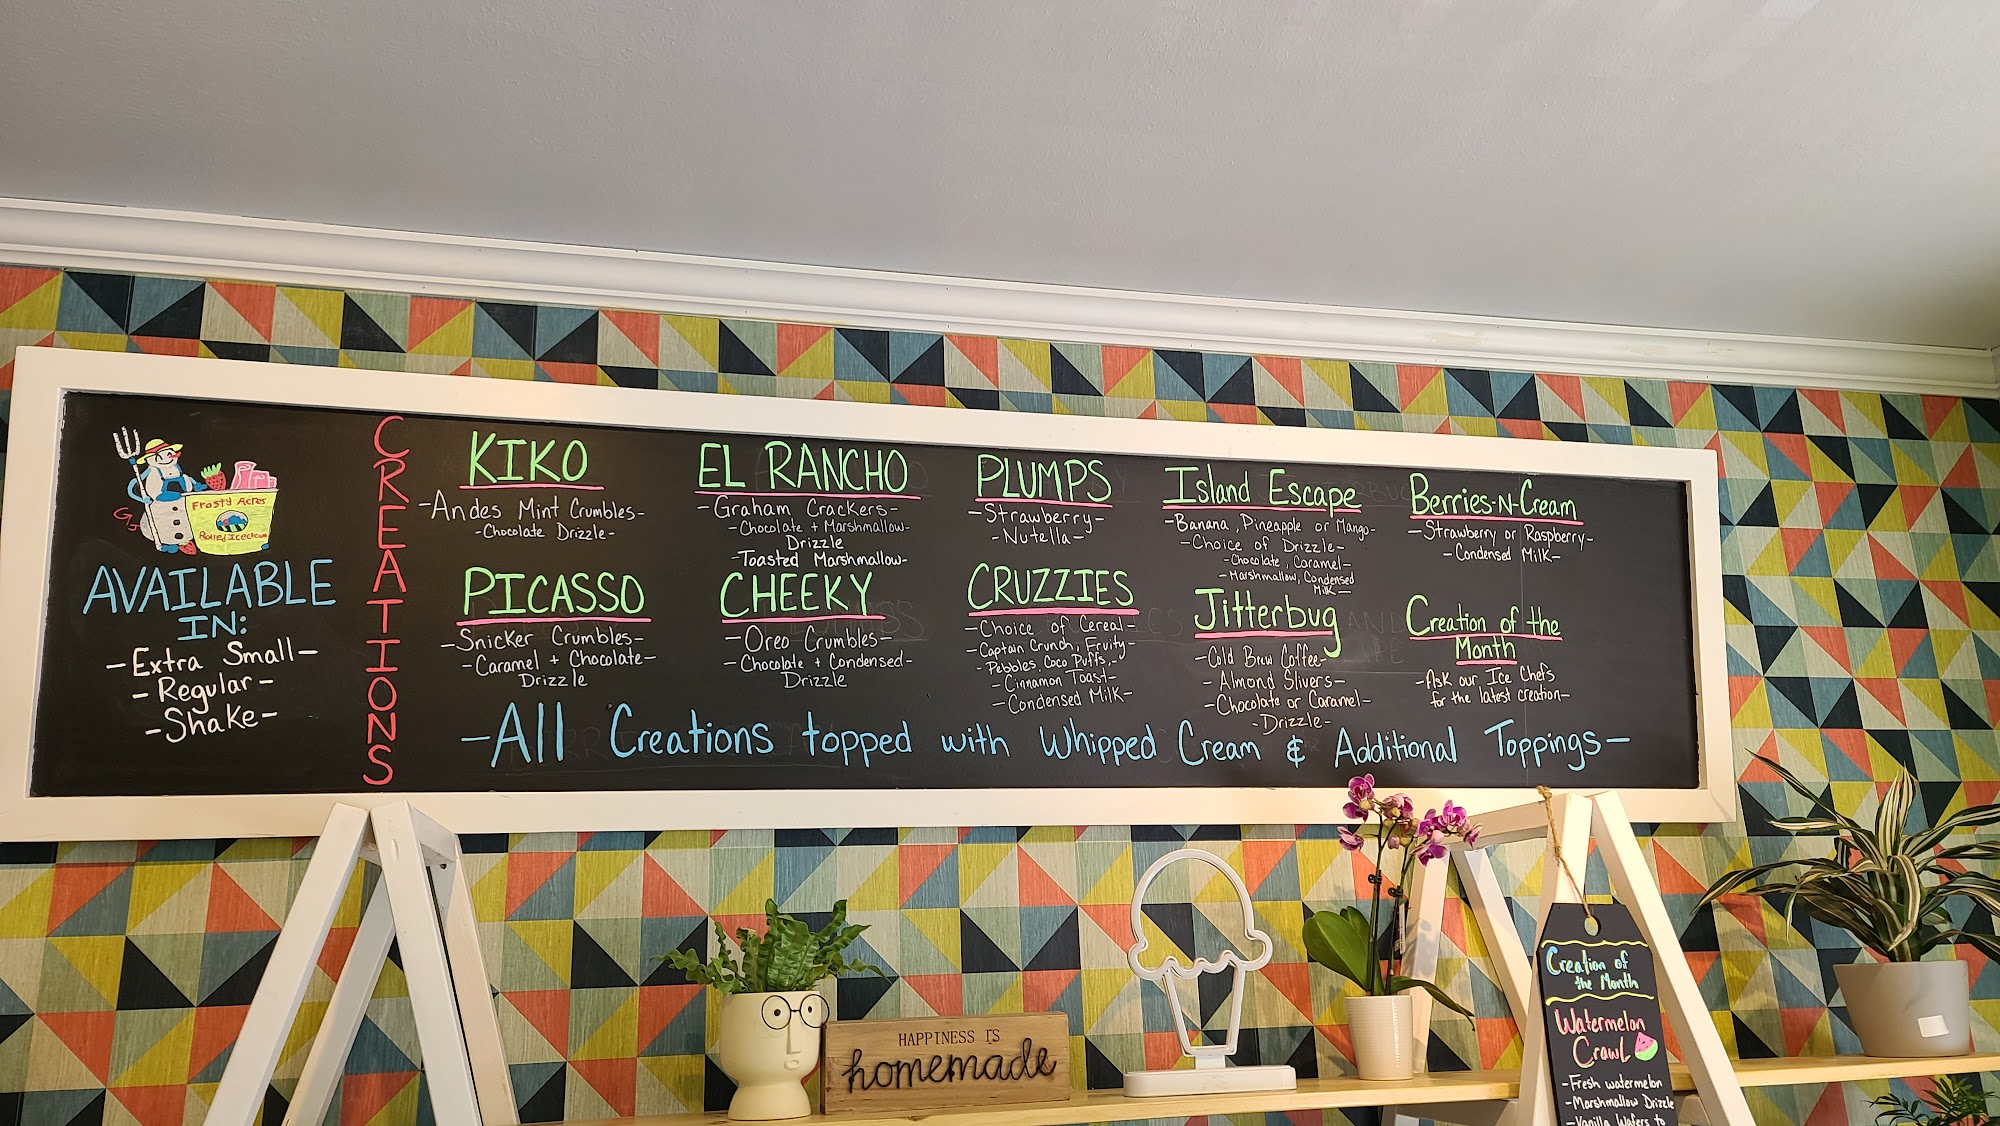 Frosty Acres
Rolled Icecream
AVAILABLE
IN:
-Extra Small-
-Regular-
-Shake-
CREATIONS
KIKO
-Andes Mint Crumbles-
-Chocolate Drizzle-
EL RANCHO
-Graham Crackers-
-Chocolate + Marshmallow-
Drizzle
-Toasted Marshmallow-
PLUMPS
-Strawberry-
-Nutella-
Island Escape
-Banana, Pineapple or Mango-
-Choice of Drizzle-
-Chocolate, Caramel-
-Marshmallow, Condensed
Milk-
Berries-N-Cream
-Strawberry or Raspberry-
-Condensed Milk-
PICASSO
-Snicker Crumbles-
-Caramel + Chocolate-
Drizzle
CHEEKY
-Oreo Crumbles-
-Chocolate + Condensed-
Drizzle
CRUZZIES
-Choice of Cereal-
-Captain Crunch, Fruity-
-Pebbles, Coco Puffs,-
-Cinnamon Toast-
-Condensed Milk-
Jitterbug
-Cold Brew Coffee-
-Almond Slivers-
-Chocolate or Caramel-
-Drizzle-
Creation of the
Month
-Ask our Ice Chefs
for the latest creation-
-All Creations topped with Whipped Cream & Additional Toppings-
HAPPINESS IS
homemade
Creation of
the Month
Watermelon
Crawl
-Fresh watermelon
-Marshmallow Drizzle
-Vanilla Wafers to